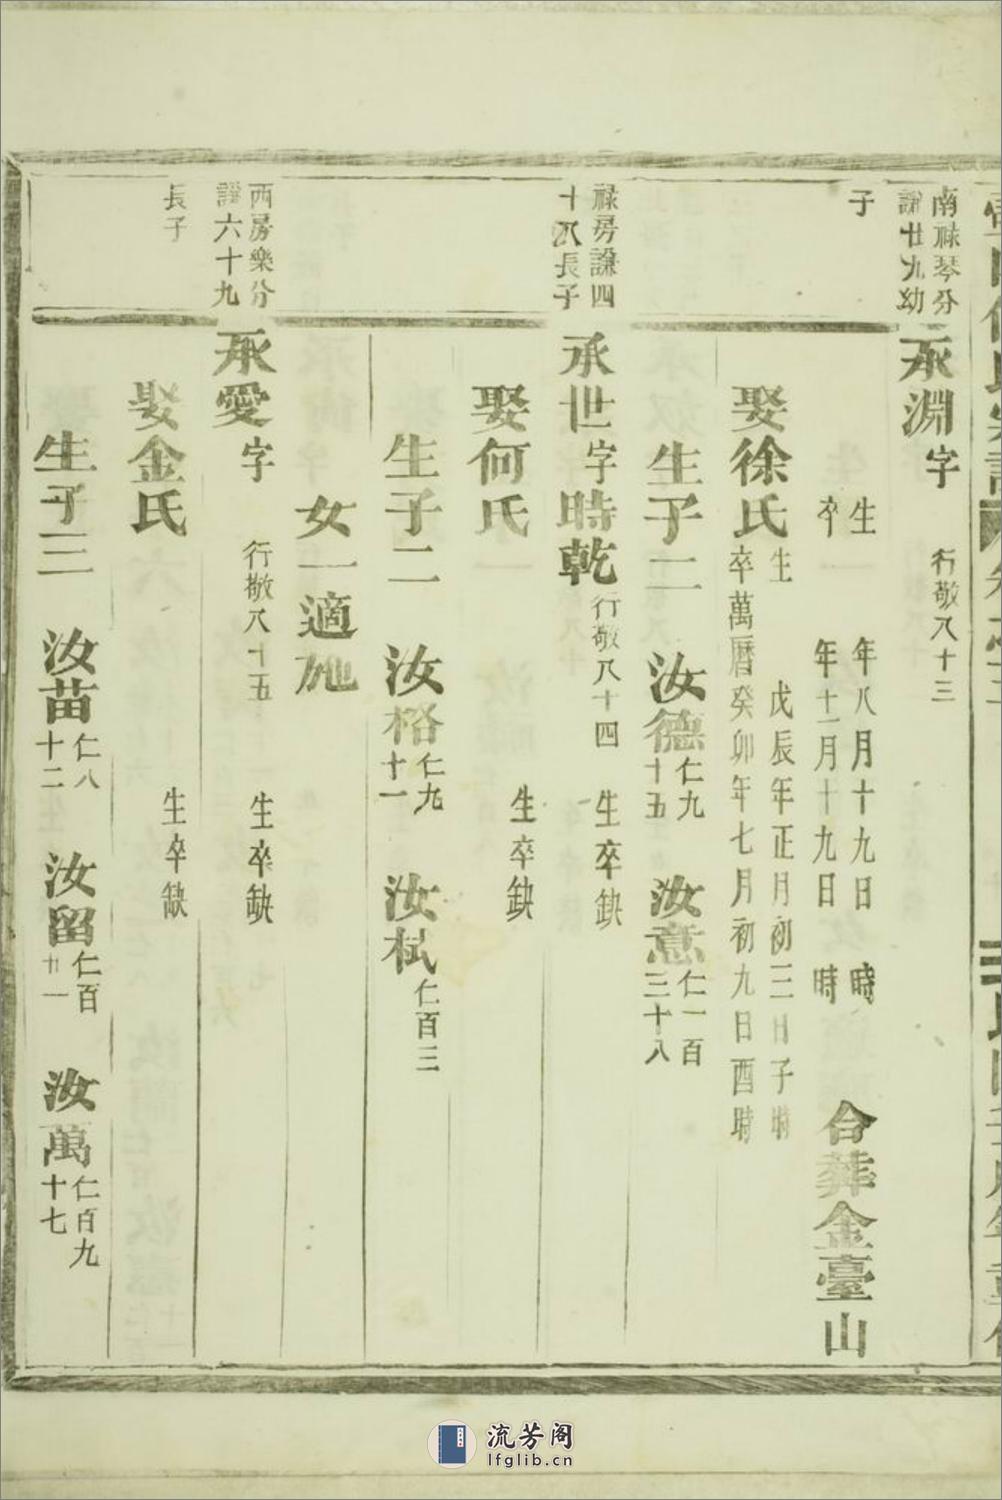 南祿琴分
謙廿九幼
子
承淵字 行敬八十三
生 年八月十九日 時
卒 年十一月十九日 時
合葬金臺山
娶徐氏
生 戊辰年正月初三日子時
卒萬曆癸卯年七月初九日酉時
生子二 汝德仁九十五 汝意仁一百三十八
祿房謙四
十八長子
承世字時乾行敬八十四 生卒缺
娶何氏 生卒缺
生子二 汝格仁九十一 汝栻仁百三
女一適施
西房樂分
謙六十九
長子
承愛字 行敬八十五 生卒缺
娶金氏 生卒缺
生子三 汝苗仁八十二 汝留仁百卅一 汝萬仁百九十七
流芳阁
lfglib.cn